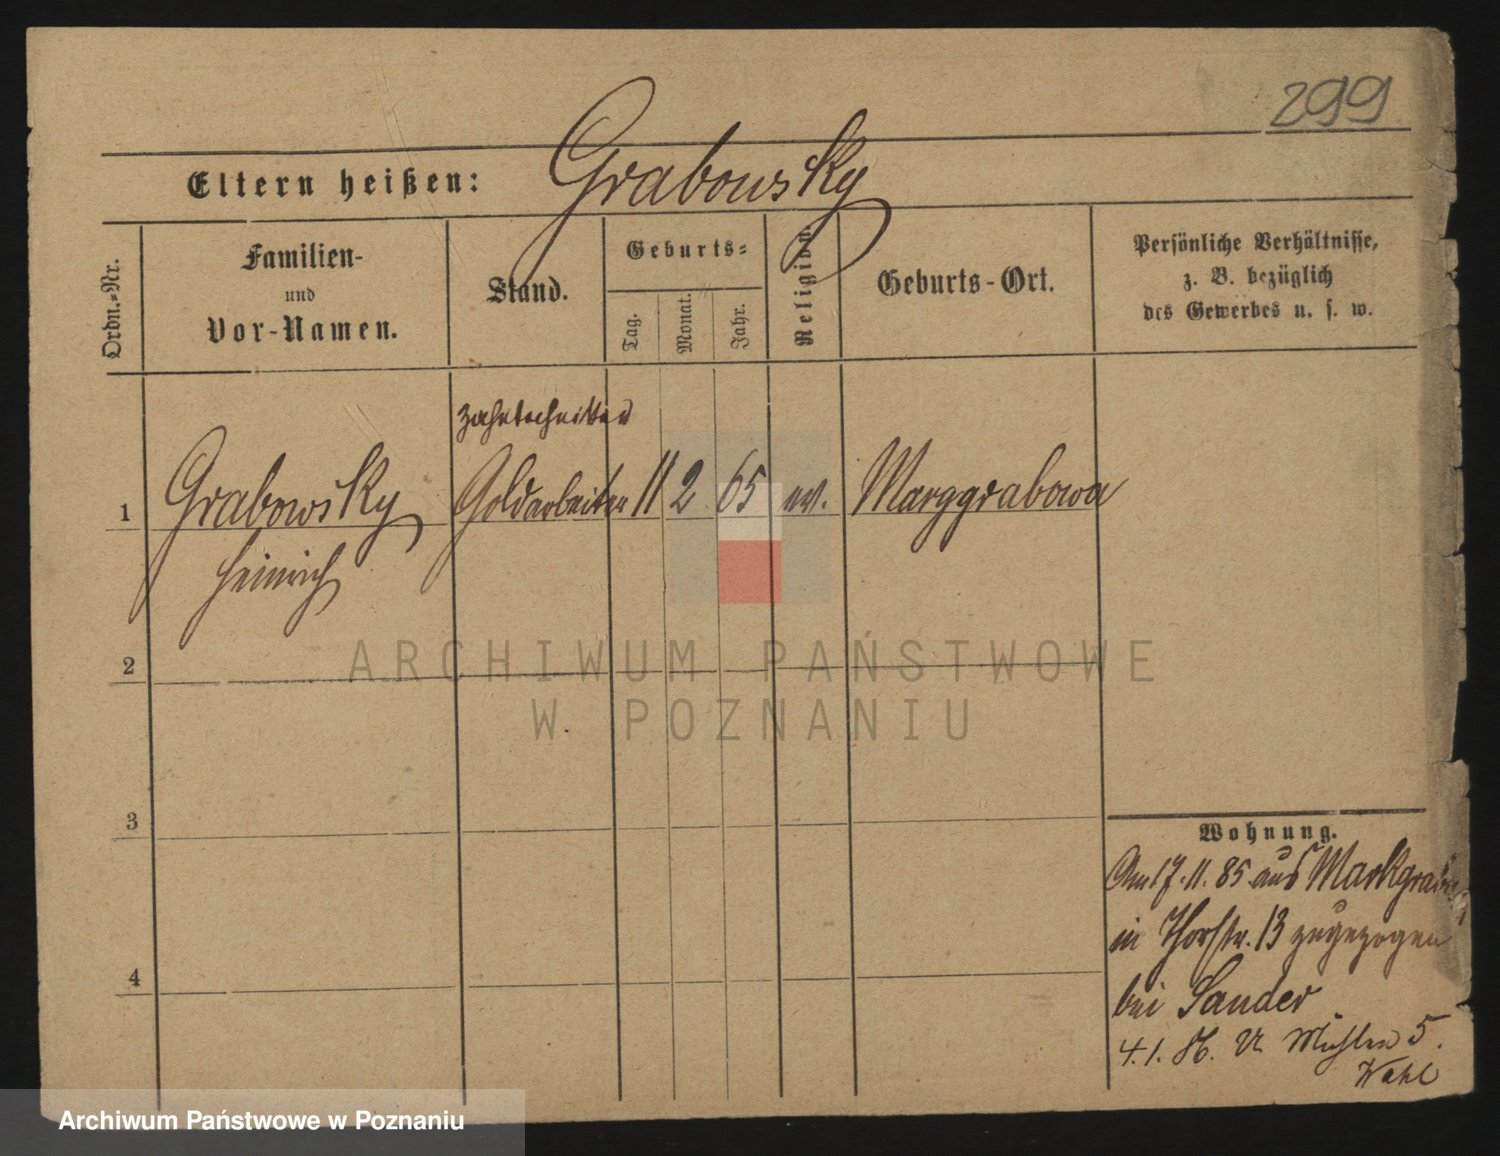 299
Eltern heißen: Grabowsky
Ordn.-Nr.
Familien-
und
Vor-Namen.
Stand.
Geburts-
Tag.
Monat.
Jahr.
Religion.
Geburts-Ort.
Persönliche Verhältnisse,
z. B. bezüglich
des Gewerbes u. s. w.
Zahntechniker
1 Grabowsky Goldarbeiter 11 2 65 ev. Marggrabowa
Heinrich
2
ARCHIWUM PAŃSTWOWE
W POZNANIU
3
Wohnung.
Am 17.11.85 aus Markgrabow
in Thorstr. 13 zugezogen
bei Sander
4
4.1. U Mühlen 5.
Wahl
Archiwum Państwowe w Poznaniu